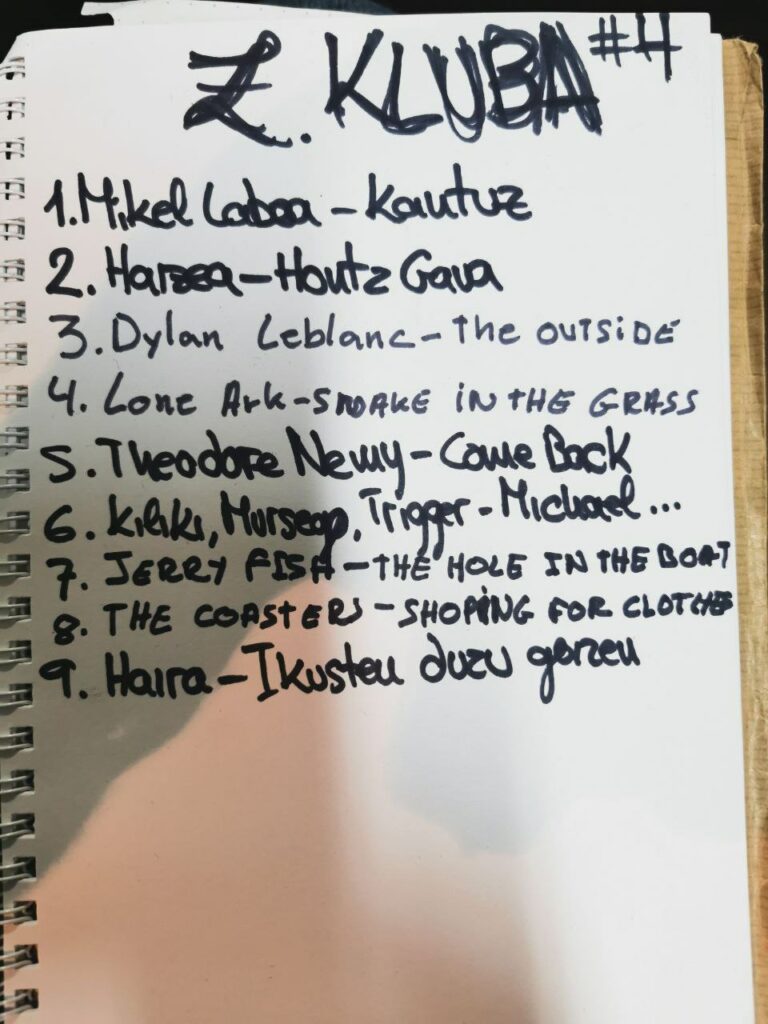 Z. KLUBA #4
1. Mikel Laboa - Kantuz
2. Harzea - Hontz Gaua
3. Dylan Leblanc - The OUTSIDE
4. Lone Ark - SNAKE IN THE GRASS
5. Theodore Nemy - Come Back
6. Kiliki, Mursego, Trigger - Michael...
7. JERRY FISH - THE HOLE IN THE BOAT
8. THE COASTERS - SHOPING FOR CLOTHES
9. Haira - Ikusten duzu gorzeu